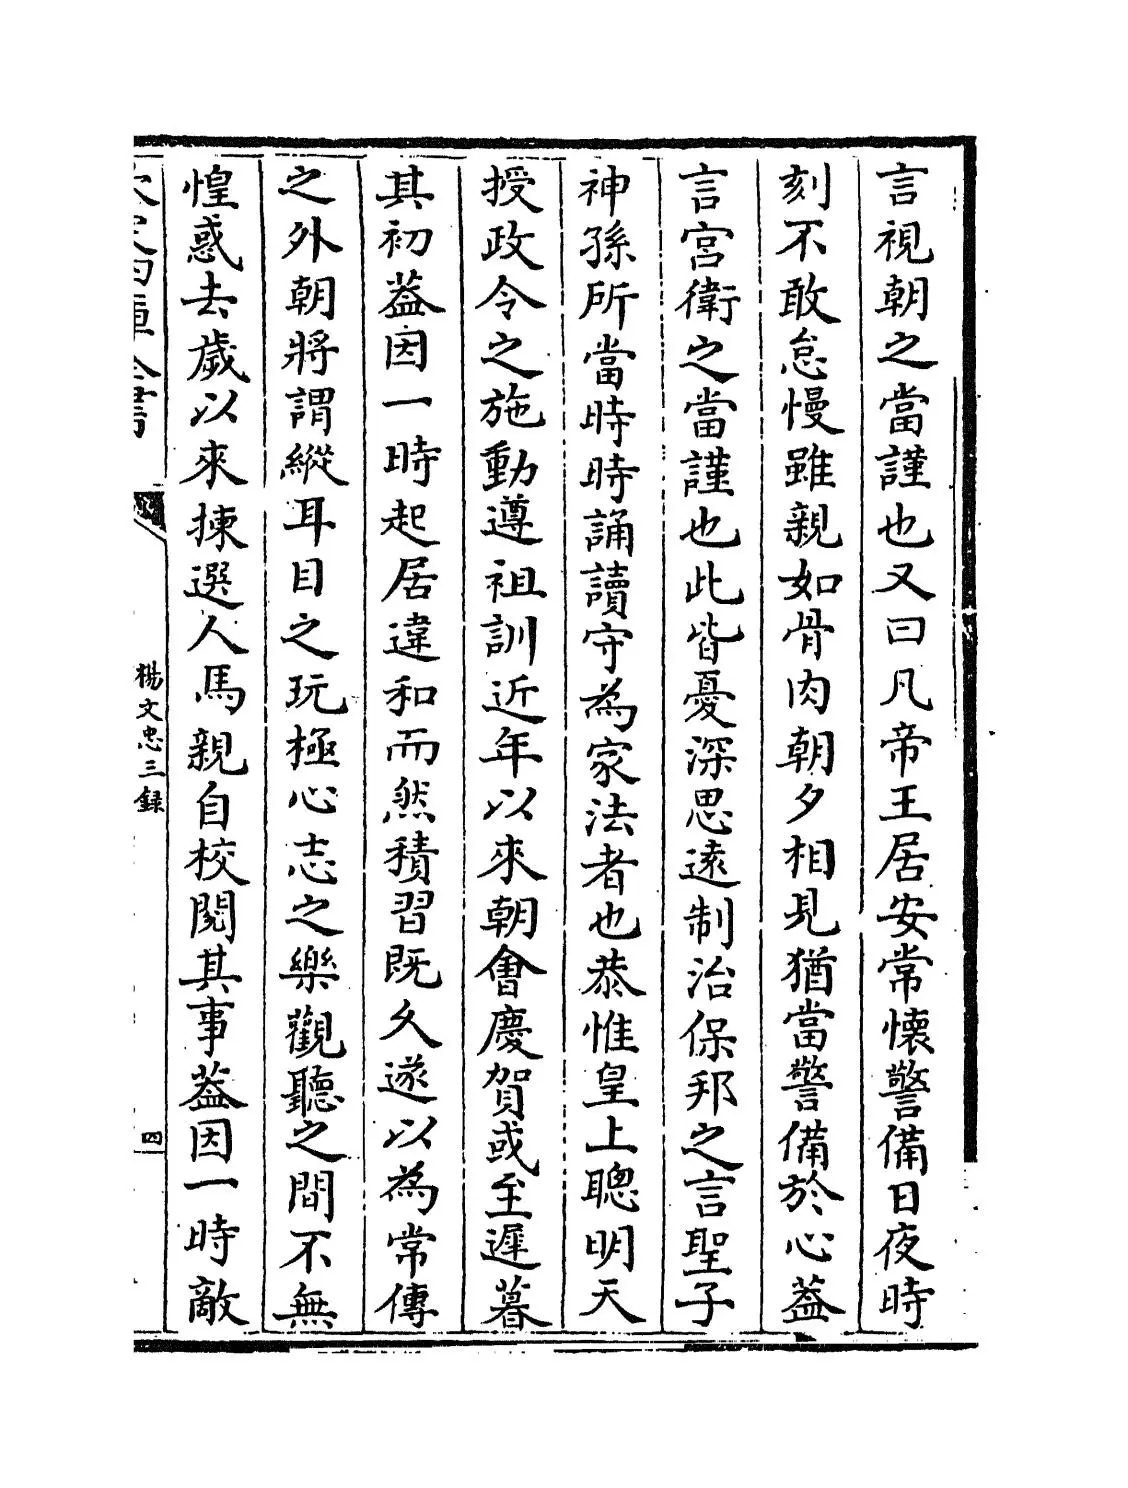 言視朝之當謹也又曰凡帝王居安常懐警備日夜時
刻不敢怠慢雖親如骨肉朝夕相見猶當警備於心葢
言宫衛之當謹也此皆憂深思逺制治保邦之言聖子
神孫所當時時誦讀守為家法者也恭惟皇上聰明天
授政令之施動遵祖訓近年以來朝㑹慶賀或至遲暮
其初葢因一時起居違和而然積習既乆遂以為常傳
之外朝將謂縱耳目之玩極心志之樂觀聽之間不無
惶惑去歳以來揀選人馬親自校閲其事葢因一時敵
楊文忠三録
四